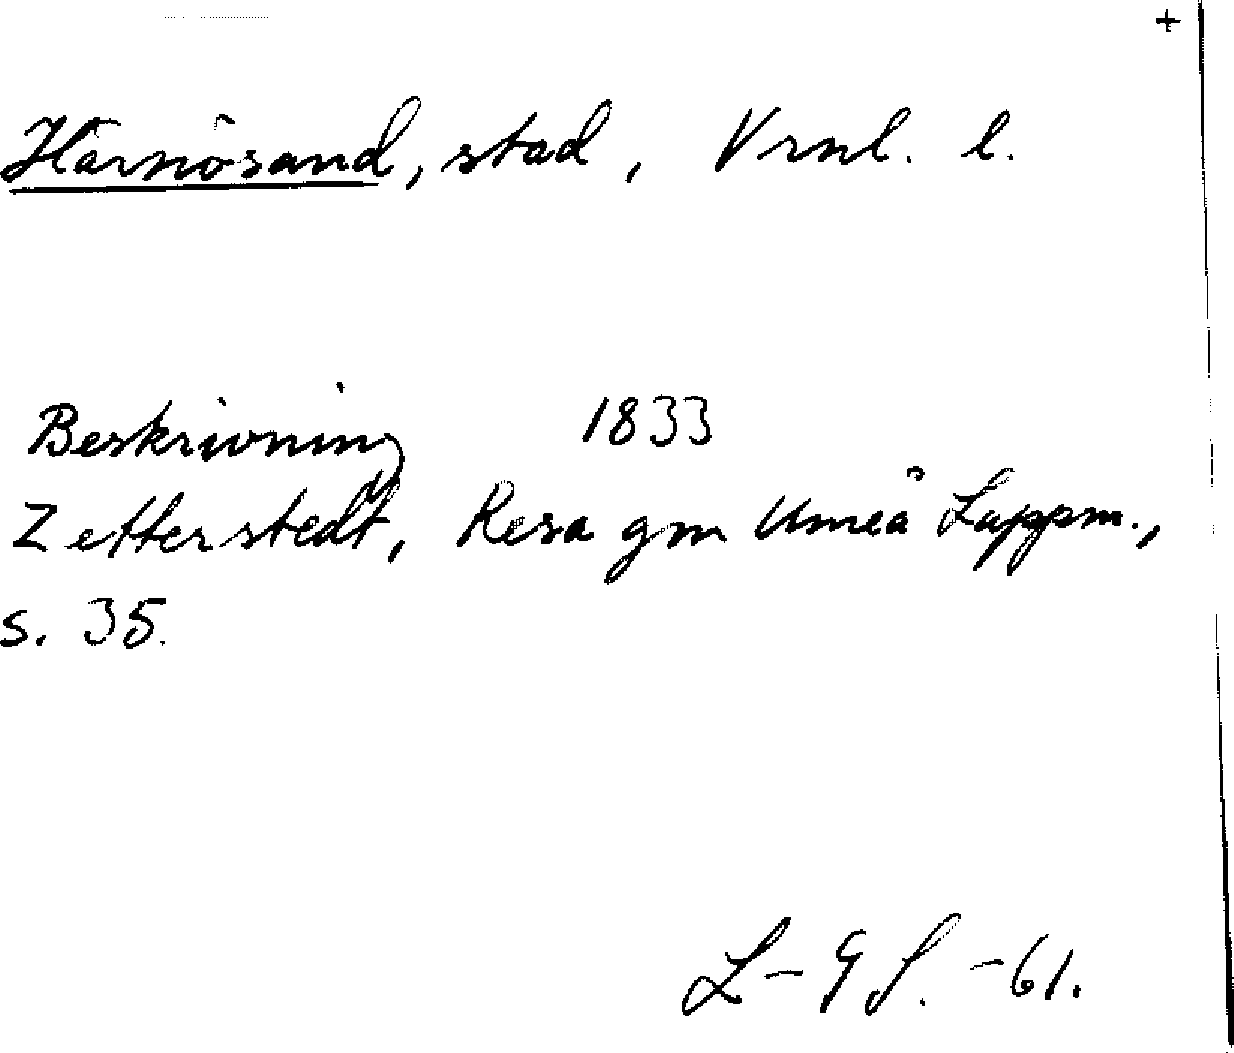 +
Härnösand, stad, Vrnl. l.
Beskrivning 1833
Zetterstedt, Resa gm Umeå Lappm.,
s. 35.
L-G S. -61.